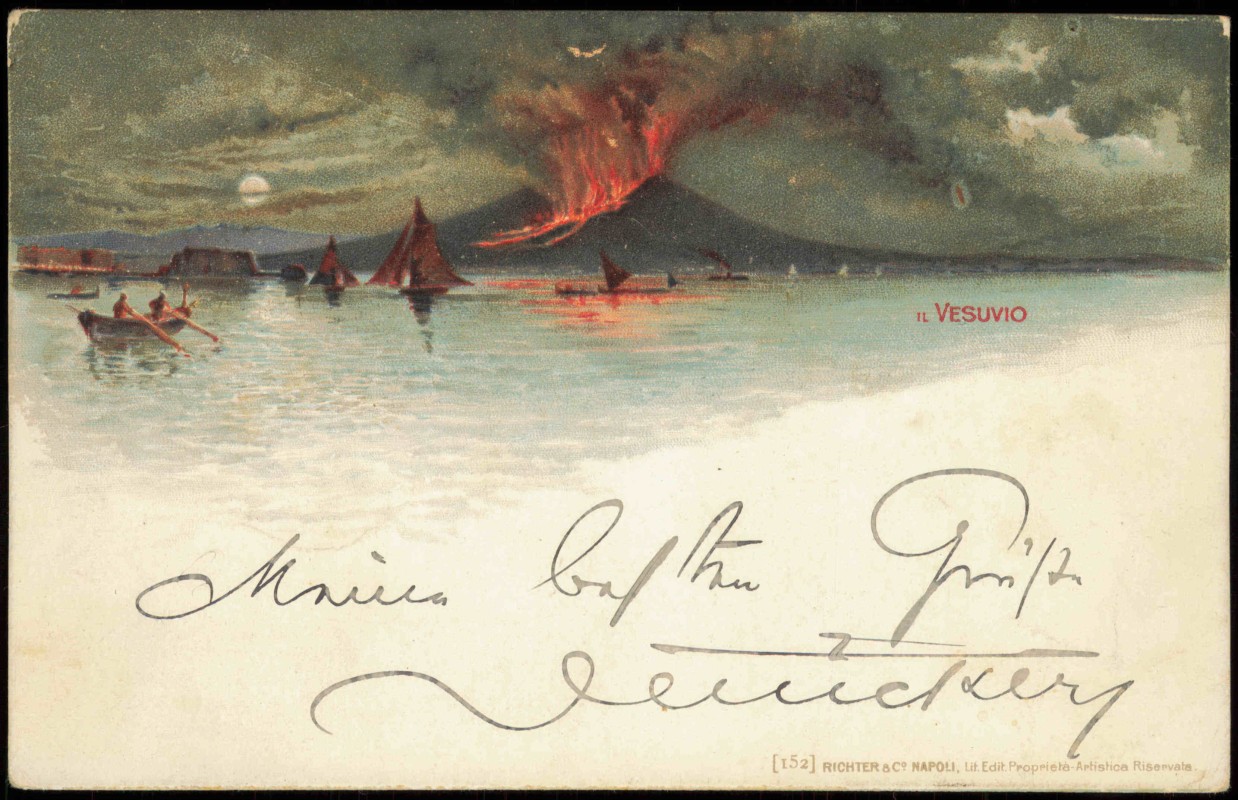 IL VESUVIO
Meinen besten Grüße
[152] RICHTER & Cº NAPOLI, Lit. Edit. Proprietà-Artistica Riservata.